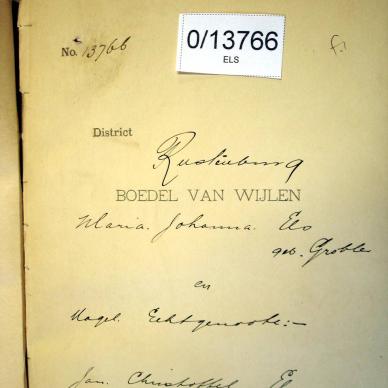 0/13766
ELS
No. 13766
f.1
District
Rustenburg
BOEDEL VAN WIJLEN
Maria Johanna Els
geb. Grobler
en
Nagel. Echtgenoote:-
Jan Christoffel El